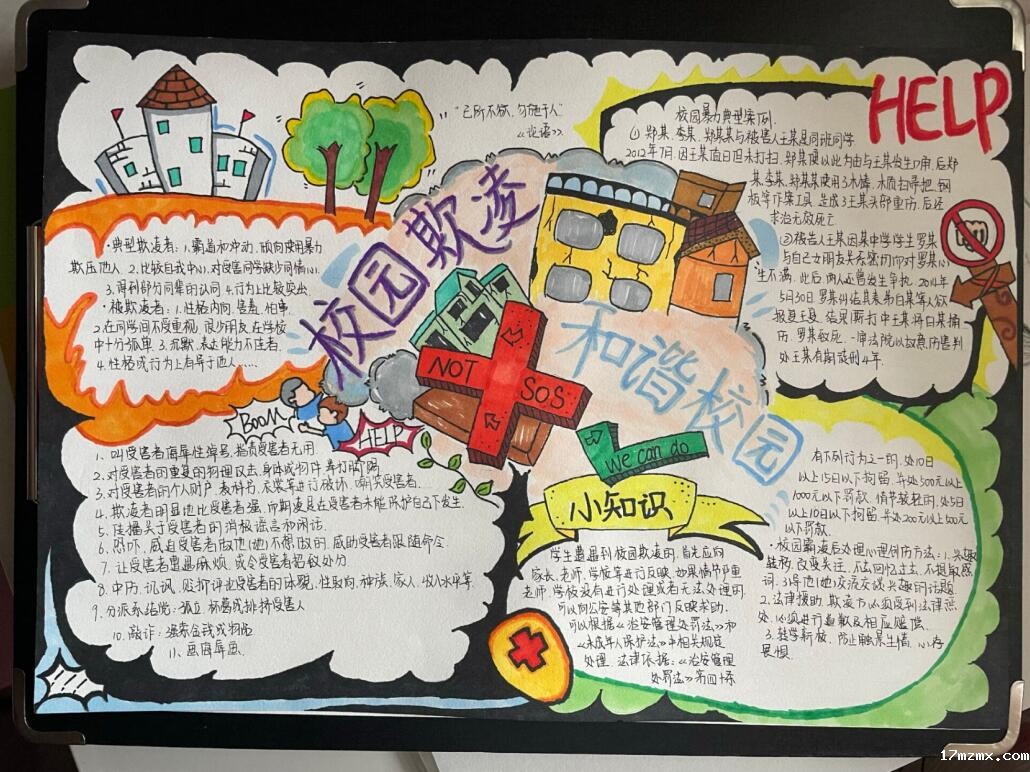 "己所不欲,勿施于人"
《论语》
HELP
校园欺凌
和谐校园
NOT
SOS
We can do
小知识
BOOM
HELP
·典型欺凌者:1.霸道和冲动,倾向使用暴力
欺压他人.2.比较自我中心,对受害同学缺少同情心.
3.得到部分同辈的认同 4.行为上比较突出.
·被欺凌者:1.性格内向.害羞.怕事.
2.在同学间不受重视,很少朋友,在学校
中十分孤单.3.沉默,表达能力不佳者.
4.性格或行为上有异于他人……
1.叫受害者侮辱性绰号,指责受害者无用.
2.对受害者的重复的物理攻击.身体或物件 拳打脚踢
3.对受害者的个人财产.教科书.衣裳等进行破坏.嘲笑受害者.
4.欺凌者明显地比受害者强,而欺凌是在受害者未能保护自己下发生.
5.传播关于受害者的消极谣言和闲话.
6.恐吓、威迫受害者做他(她)不想做的,威胁受害者跟随命令.
7.让受害者遭遇麻烦,或令受害者招致处分
8.中伤.讥讽.贬抑评论受害者的体貌.性取向.种族.家人.收入水平等.
9.分派系结党:孤立.杯葛或排挤受害人
10.敲诈:强索金钱或物品
11.画侮辱画.
校园暴力典型案例.
① 郑某.李某.郑某某与被害人王某是同班同学
2012年7月.因王某值日但未打扫.郑某便以此为由与王某发生口角.后郑
某.李某.郑某某使用了木棒.木质扫帚把.钢
板等作案工具.造成了王某头部重伤.后经
求治无效死亡
②被告人王某因某中学学生罗某
与自己女朋友吴某密切而对罗某心
生不满.此后.两人还曾发生争执.2014年
5月30日.罗某纠结其表弟白某等人欲
报复王某.结果厮打中王某将白某捅
伤.罗某致死.一审法院以故意伤害判
处王某有期徒刑4年.
学生遭遇到校园欺凌的.首先应向
家长.老师.学校等进行反映.如果情节严重
老师.学校没有进行处理或者无法处理的.
可以向公安等其他部门反映求助.
可以根据《治安管理处罚法》和
《未成年人保护法》中相关规定
处理.法律依据:《治安管理
处罚法》第四十条
有下列行为之一的,处10日
以上15日以下拘留.并处500元以上
1000元以下罚款.情节较轻的,处5日
以上10日以下拘留.并处200元以上500元
以下罚款.
·校园霸凌后处理心理创伤方法:1.兴趣
转移.改变关注.不去回忆过去.不提敏感
词.引导他(她)交流交谈兴趣的话题.
2.法律援助.欺凌方必须受到法律惩
处.必须进行道歉及相应赔偿.
3.转学新校.防止触景生情.心存
畏惧.
17mzmx.com